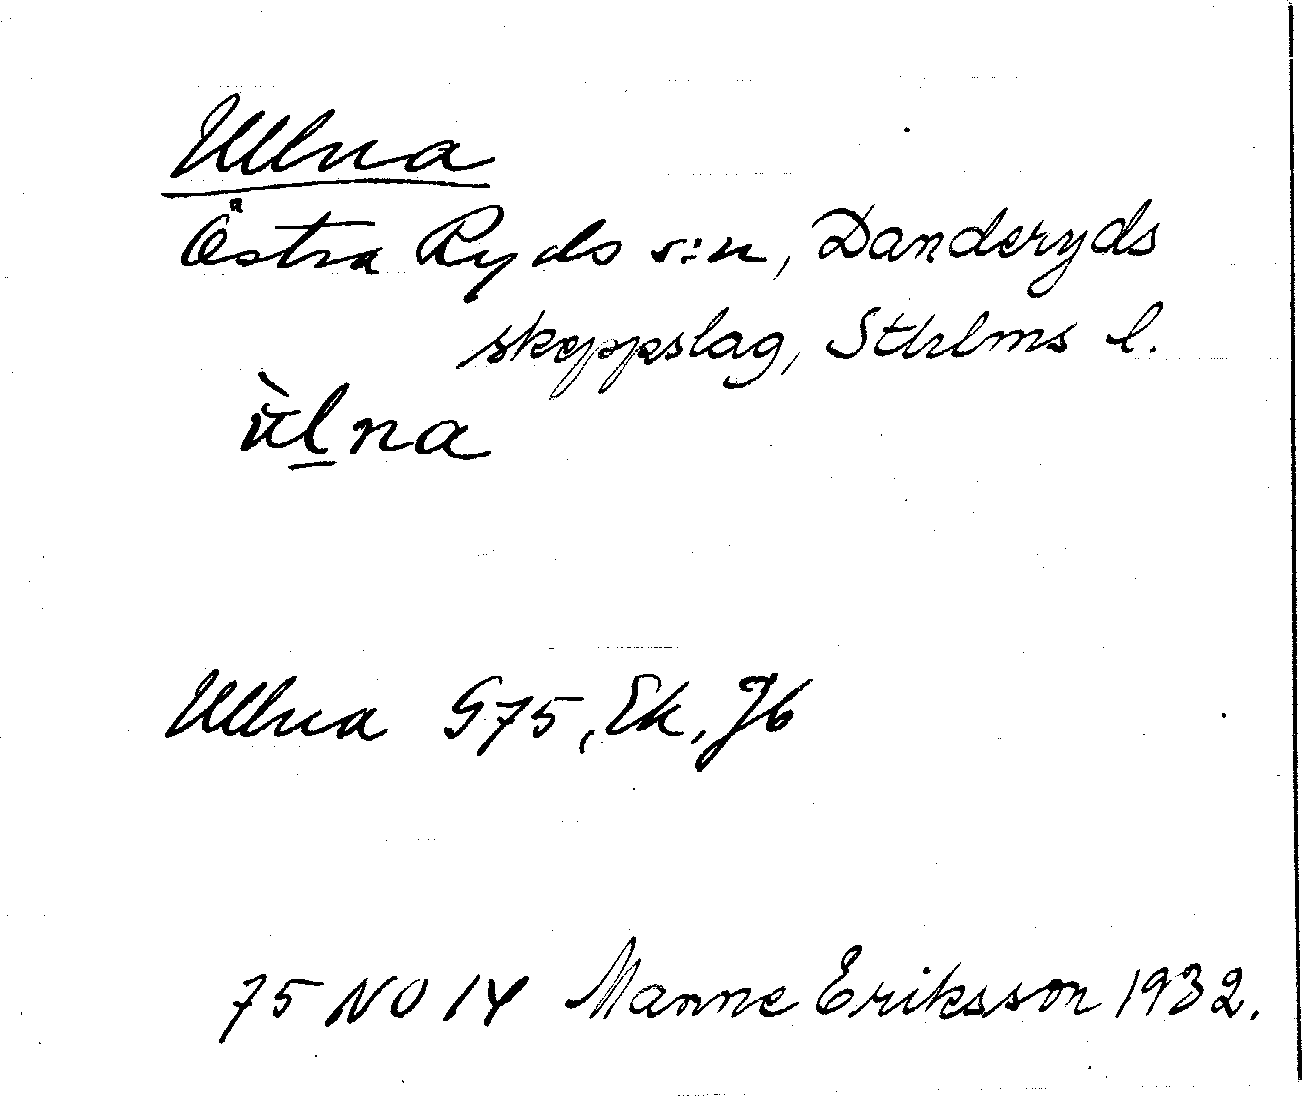 Ullna
Östra Ryds s:n, Danderyds
skeppslag, Sthlms l.
ùl̲na
Ullna G75, Ek, Jb
75 NO IY Manne Eriksson 1932.